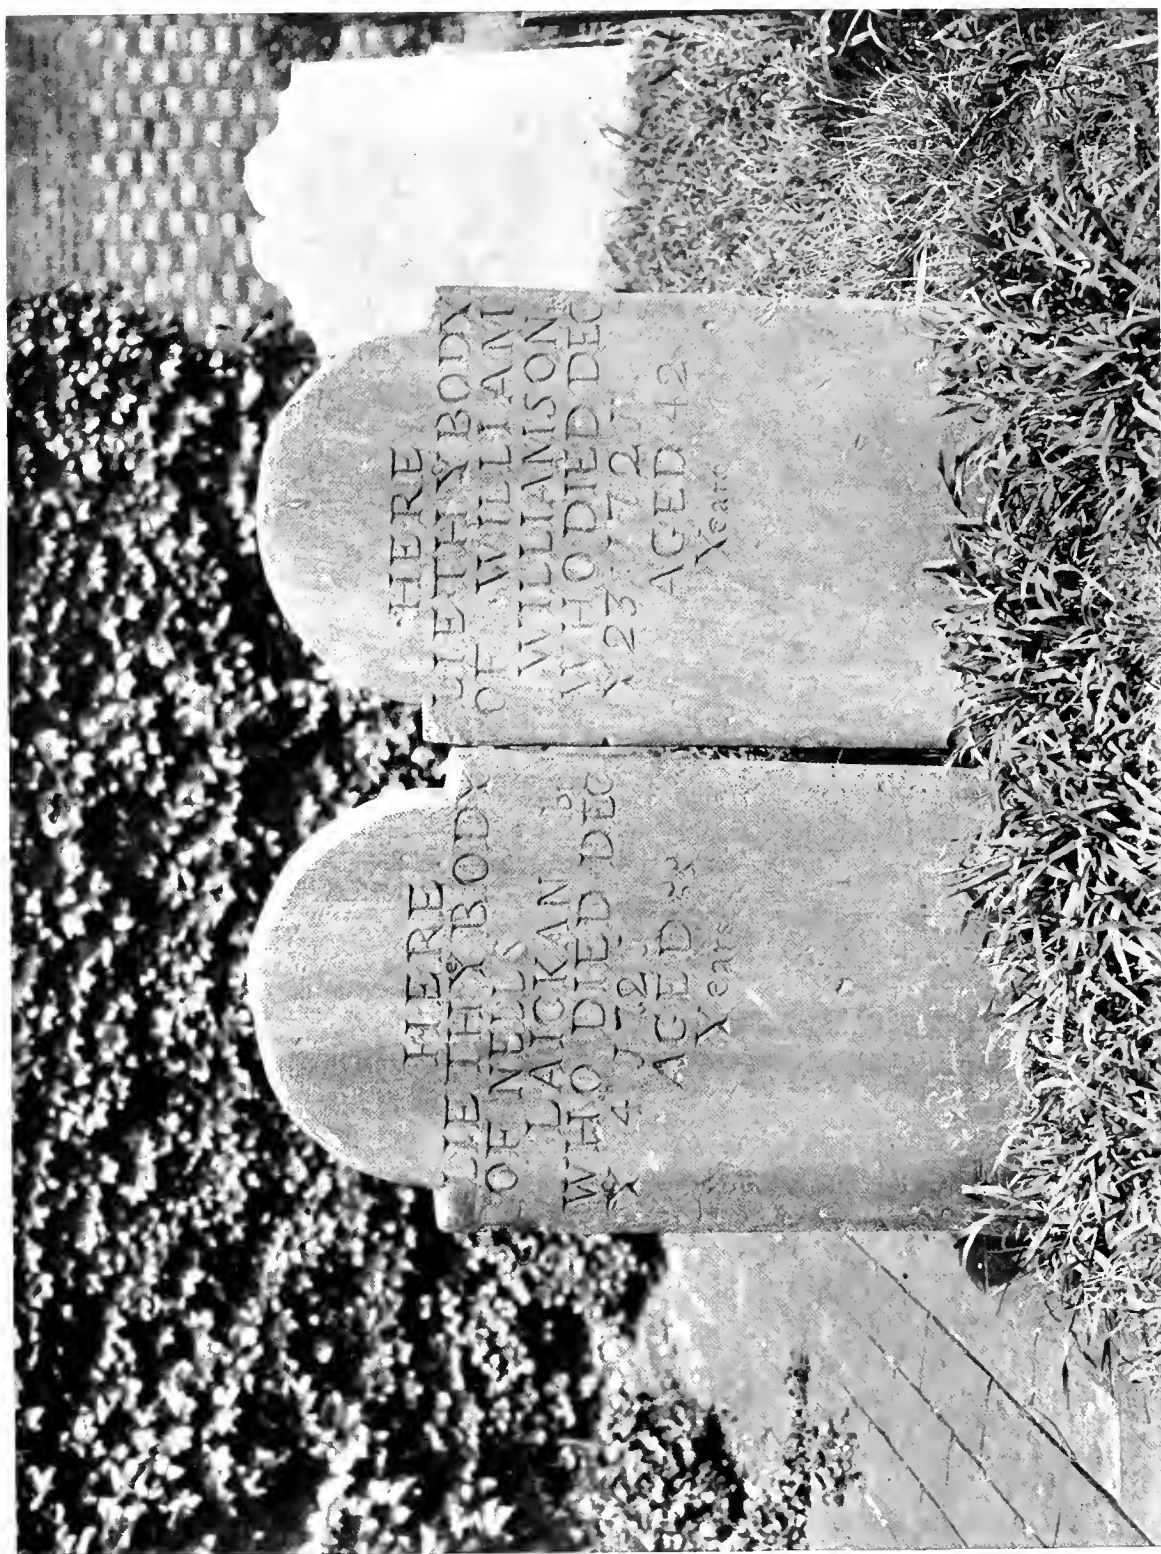 HERE
LIE THY BODY
OF NELS
LAICKAN
WHO DIED DEC
Y 4
AGED
Years
HERE
LIETHY BODY
OF WILLIAM
WILLIAMSON
WHO DIED DEC
Y 23
AGED 42
Years